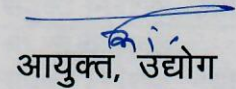 आयुक्त, उद्योग